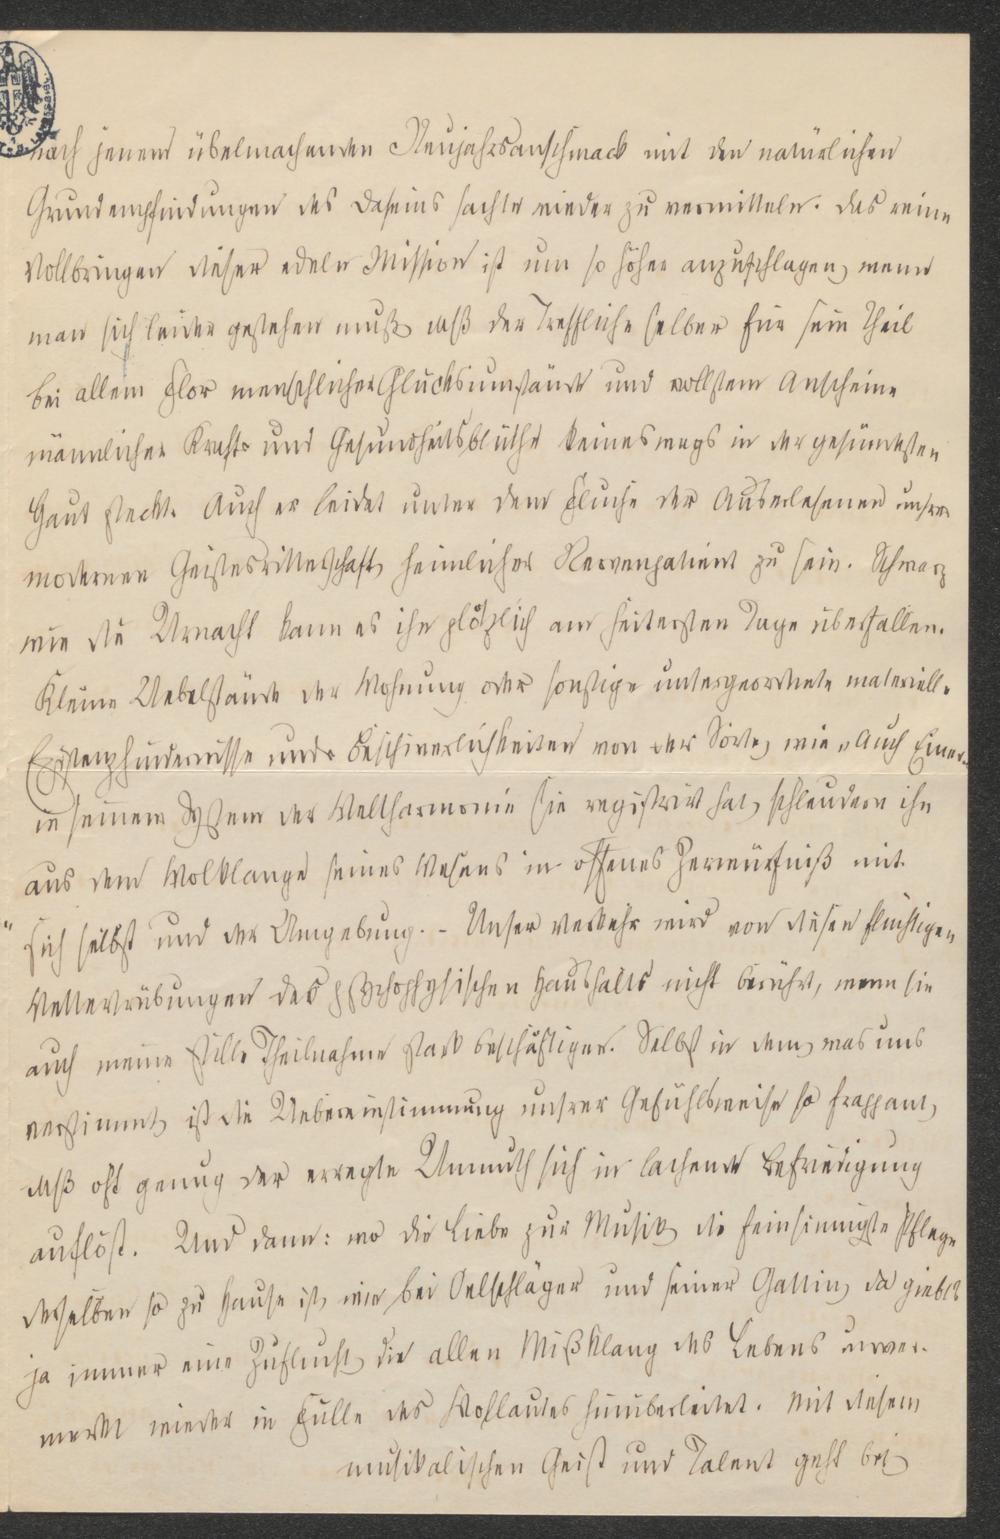 nach jenem übelmachenden Neujahrsanschmack mit den natürlichen
Grundempfindungen des Daseins sachte wieder zu vermitteln. Das reine
Vollbringen dieser edeln Mission ist um so höher anzuschlagen, wenn
man sich leider gestehen muß, daß der Treffliche selber für sein Theil
bei allem Flor menschlicher Glücksumstände und vollstem Anscheine
männlicher Kraft- und Gesundheitsblüthe keineswegs in der gesündesten
Haut steckt. Auch er leidet unter dem Fluche der Auserlesenen unsrer
modernen Geistesritterschaft, heimlicher Nervenpatient zu sein. Schwarz
wie die Urnacht kann es ihn plötzlich am heitersten Tage überfallen.
Kleine Uebelstände der Wohnung oder sonstige untergeordnete materielle
Existenzhindernisse und Beschwerlichkeiten von der Sorte, wie „Auch Einer"
in seinem System der Weltharmonie sie registrirt hat, schleudern ihn
aus dem Wolklange seines Wesens in offenes Zerwürfniß mit
sich selbst und der Umgebung. - Unser Verkehr wird von diesen flüchtigen
Wettertrübungen des psychophysischen Haushalts nicht berührt, wenn sie
auch meine stille Theilnahme stark beschäftigen. Selbst in dem, was uns
verstimmt, ist die Uebereinstimmung unsrer Gefühlsweise so frappant,
daß oft genug der erregte Unmuth sich in lachende Befriedigung
auflöst. Und dann: wo die Liebe zur Musik, die feinsinnigste Pflege
derselben so zu Hause ist, wie bei Oelschläger und seiner Gattin, da giebts
ja immer eine Zuflucht, die allen Mißklang des Lebens unver-
merkt wieder in Fülle des Wohlautes hinüberleitet. Mit diesem
musikalischen Geist und Talent geht bei